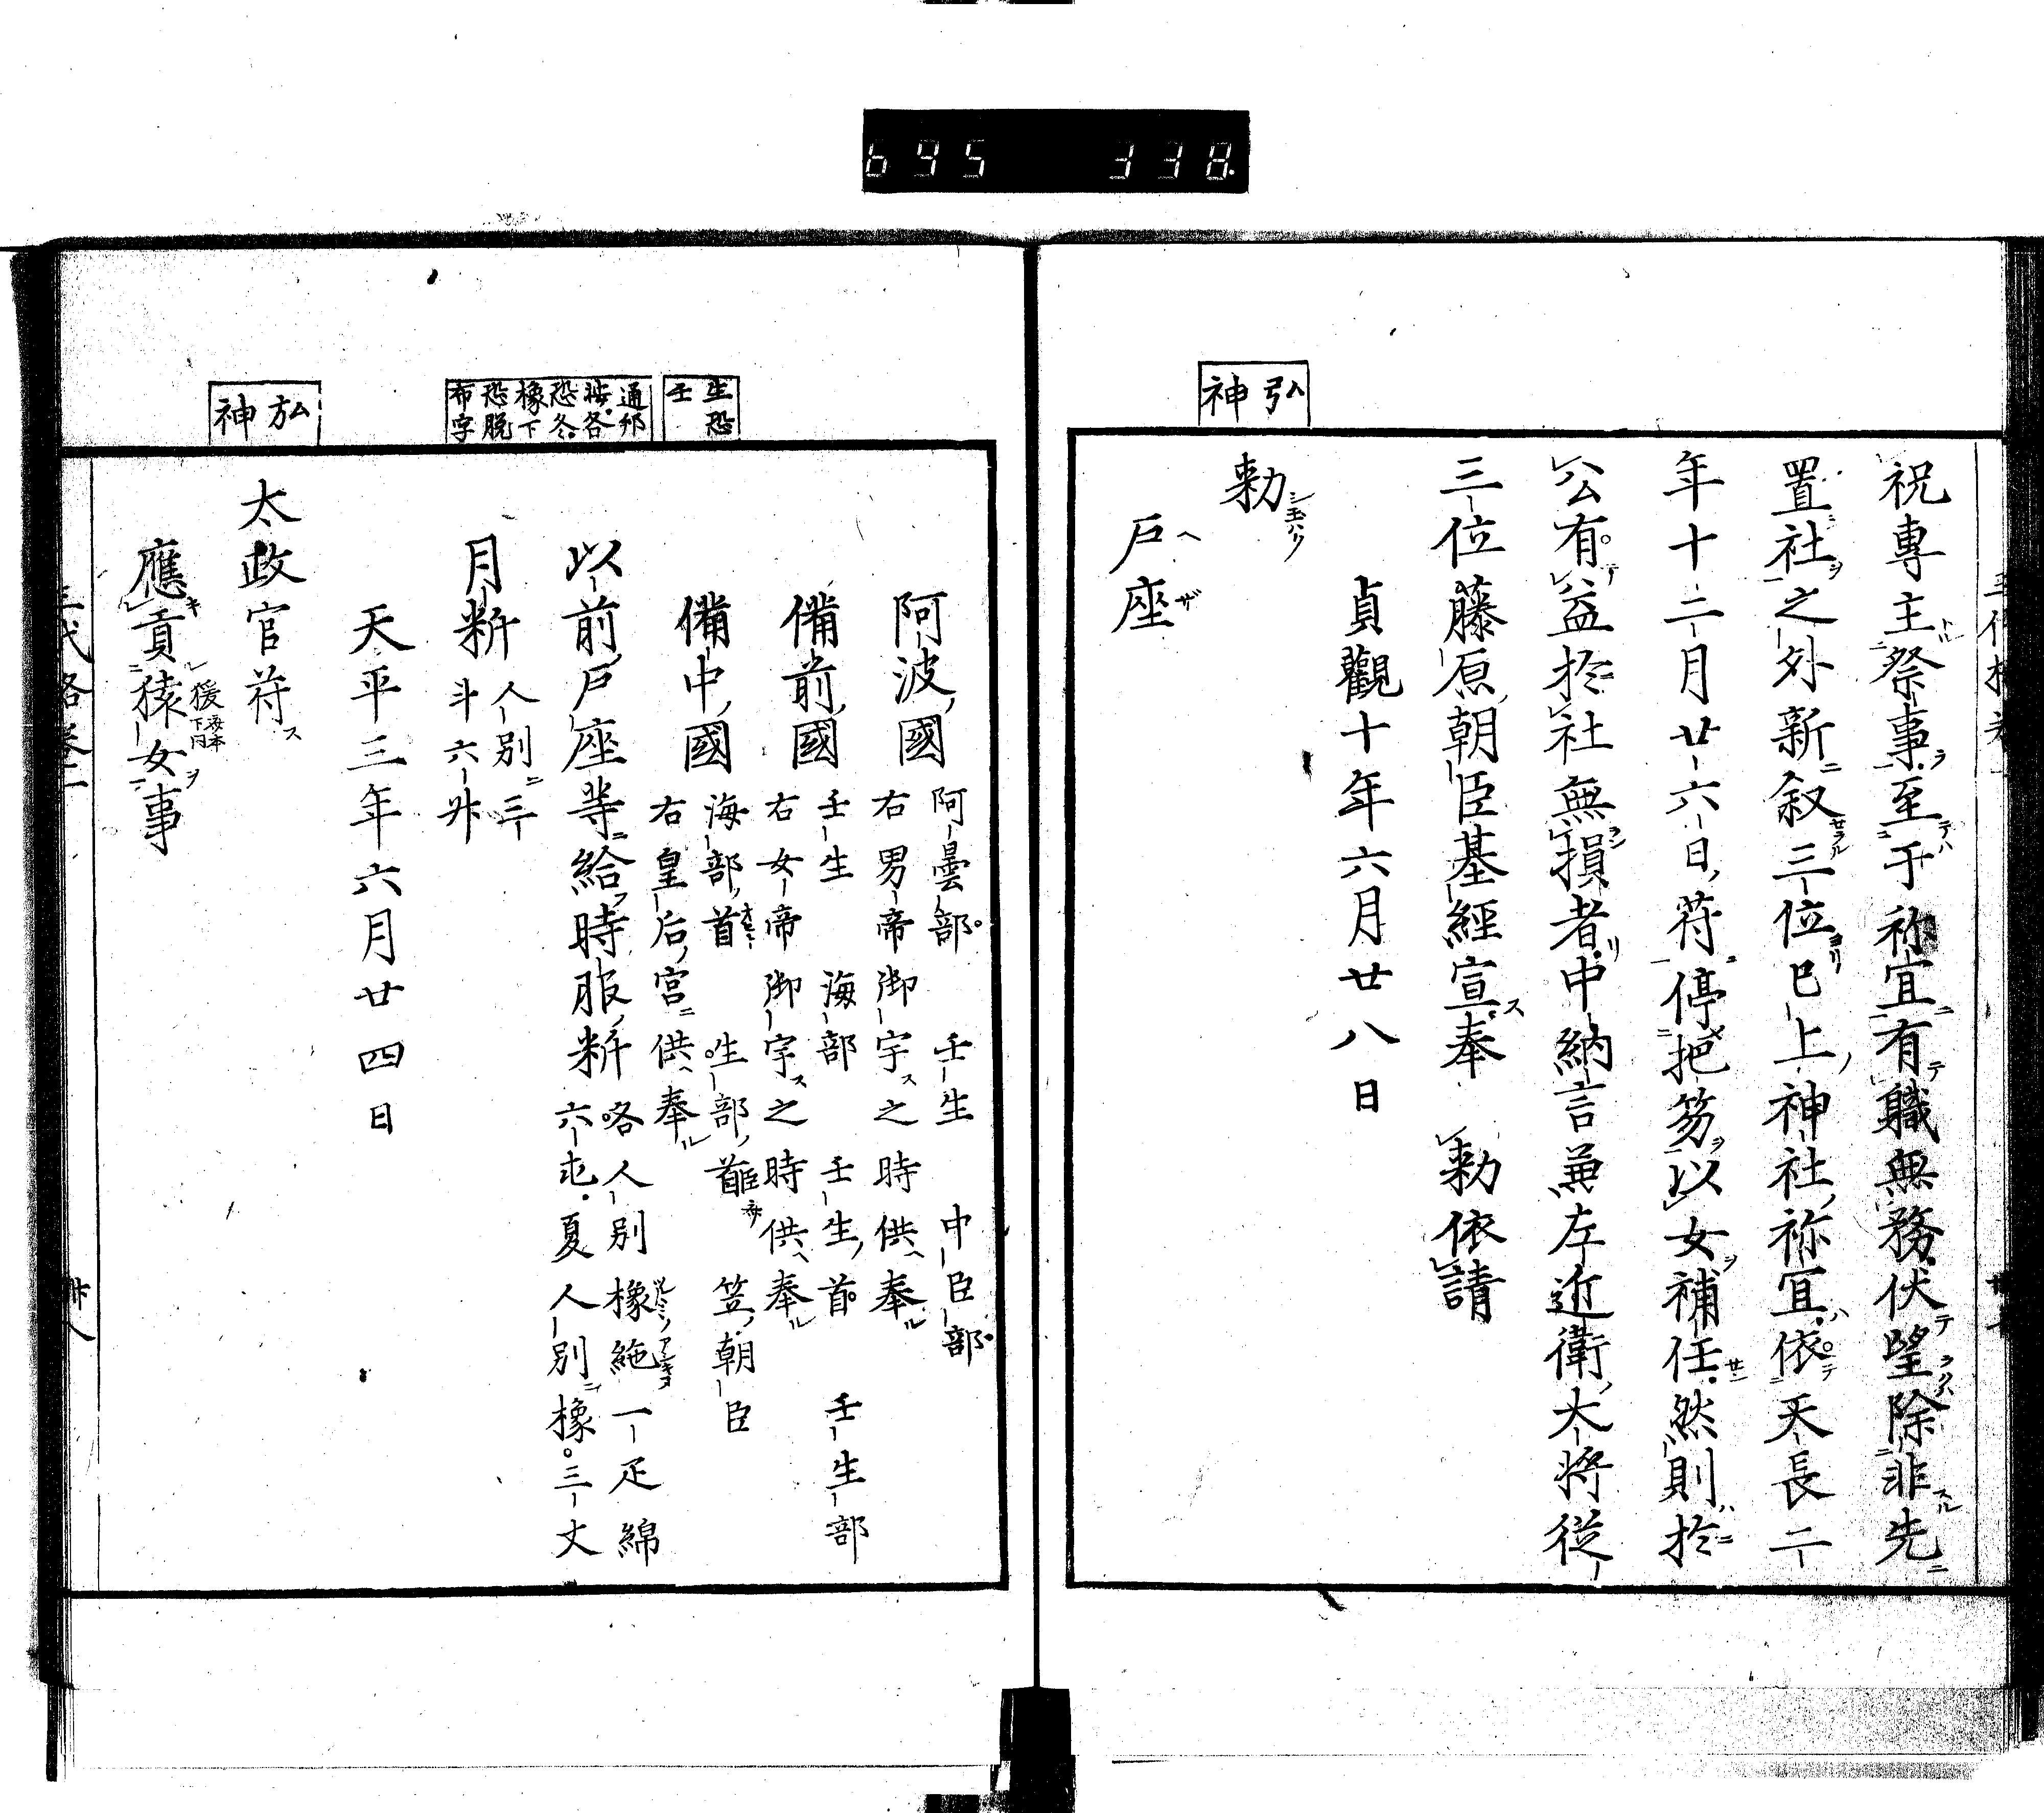 695 338
弘神
祝專主祭事至于祢宜有職無務伏望除非先
置社之外新叙三位已上神社祢宜依天長二
年十二月廿六日符停把笏以女補任然則於
公有益於社無損者中納言兼左近衛大将從
三位藤原朝臣基經宣奉　勅依請
貞觀十年六月廿八日
勅
戸座
生恐
壬
通邦
按各
恐冬
橡下
恐脱
布字
弘神
阿波國　阿曇部　壬生　中臣部
右男帝御宇之時供奉
備前國　壬生　海部　壬生首　壬生部
右女帝御宇之時供奉
備中國　海部首　生部首　笠朝臣
右皇后宮供奉
以前戸座等給時服料　各人別橡絁一疋綿
六屯夏人別橡三丈
月料　人別三
斗六升
天平三年六月廿四日
太政官符
應貢猿女事